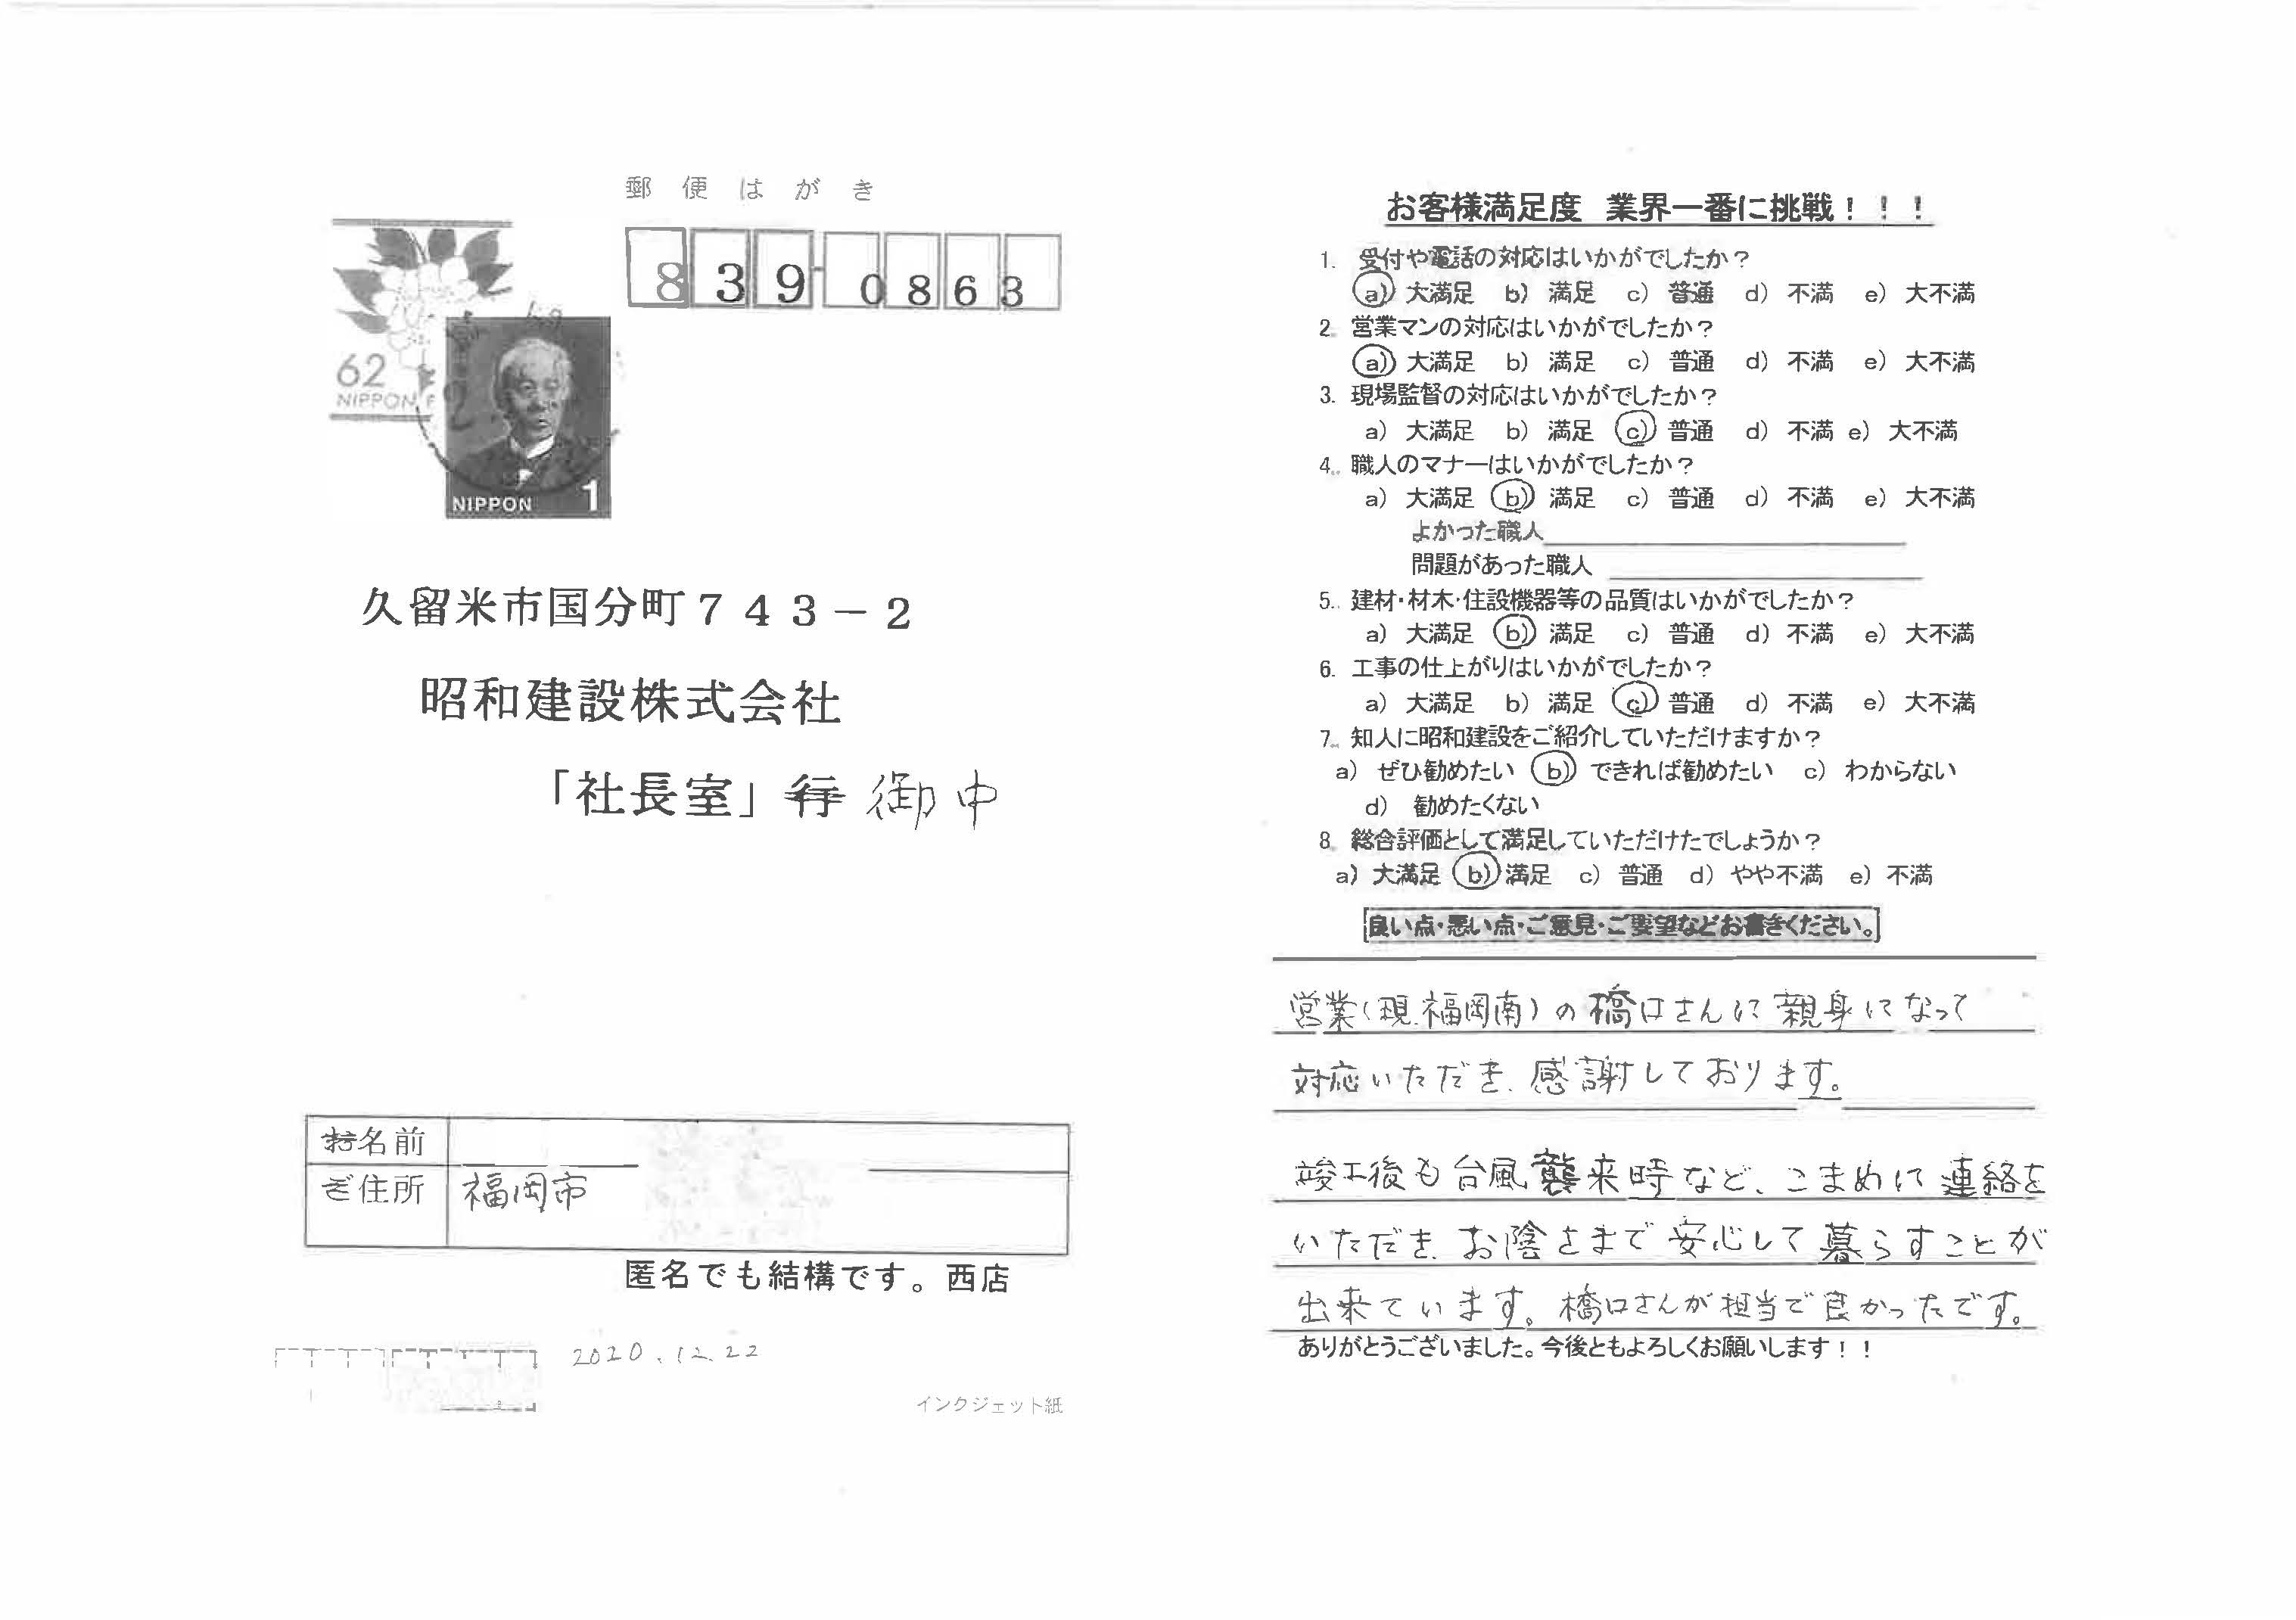 郵便はがき
839-0863
62
NIPPON
NIPPON 1
久留米市国分町743-2
昭和建設株式会社
「社長室」行 御中
お名前
ご住所 福岡市
匿名でも結構です。西店
2020.12.22
インクジェット紙
お客様満足度 業界一番に挑戦！！！
1. 受付や電話の対応はいかがでしたか？
a) 大満足 b) 満足 c) 普通 d) 不満 e) 大不満
2. 営業マンの対応はいかがでしたか？
a) 大満足 b) 満足 c) 普通 d) 不満 e) 大不満
3. 現場監督の対応はいかがでしたか？
a) 大満足 b) 満足 c) 普通 d) 不満 e) 大不満
4. 職人のマナーはいかがでしたか？
a) 大満足 b) 満足 c) 普通 d) 不満 e) 大不満
よかった職人
問題があった職人
5. 建材・材木・住設機器等の品質はいかがでしたか？
a) 大満足 b) 満足 c) 普通 d) 不満 e) 大不満
6. 工事の仕上がりはいかがでしたか？
a) 大満足 b) 満足 c) 普通 d) 不満 e) 大不満
7. 知人に昭和建設をご紹介していただけますか？
a) ぜひ勧めたい b) できれば勧めたい c) わからない
d) 勧めたくない
8. 総合評価として満足していただけたでしょうか？
a) 大満足 b) 満足 c) 普通 d) やや不満 e) 不満
良い点・悪い点・ご意見・ご要望などお書きください。
営業(現.福岡南)の橋口さんに親身になって
対応いただき、感謝しております。
竣工後も台風襲来時など、こまめに連絡を
いただき、お陰さまで安心して暮らすことが
出来ています。橋口さんが担当で良かったです。
ありがとうございました。今後ともよろしくお願いします！！